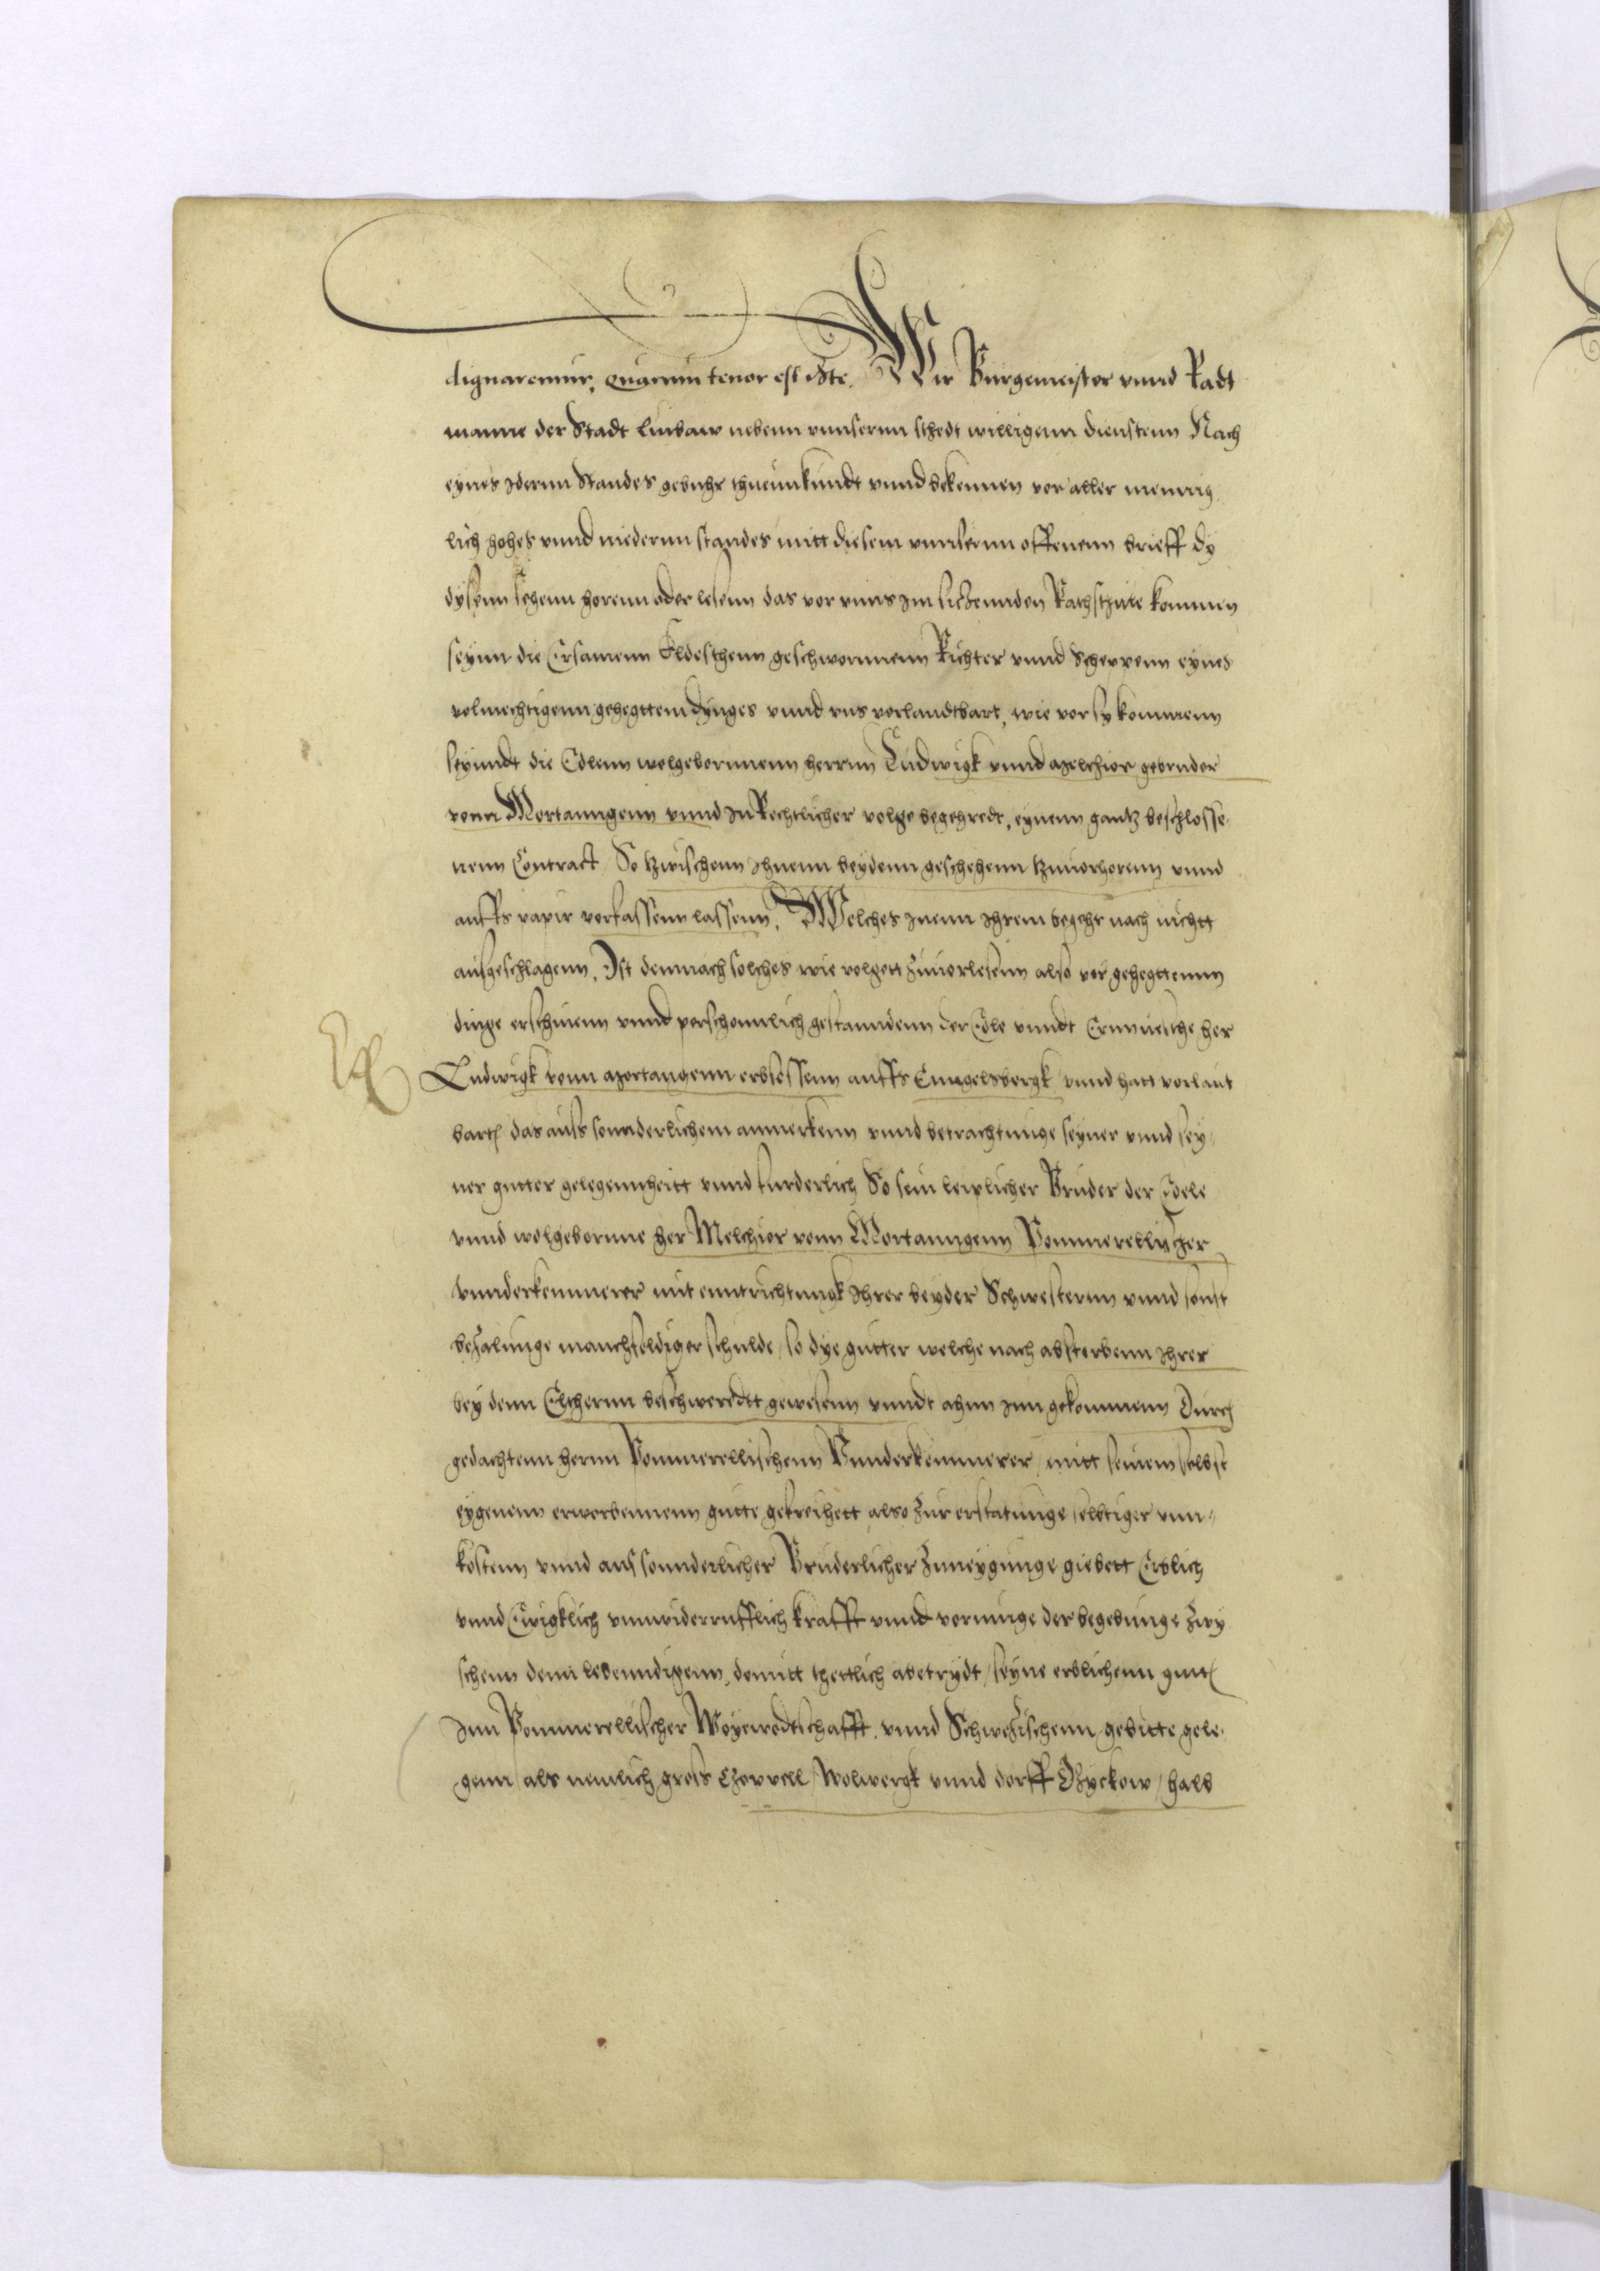 dignaremur, quarum tenor est iste. Wir Burgemeister vnnd Radt
manne der Stadt Liubaw nebenn vnnsernn stedt willigenn dienstenn Nach
eynes idernn Standes gebuhr thuenn kundt vnnd bekennen vor aller mennig
lich hohes vnnd niedernn standes mitt diesem vnnsernn offenenn brieff dy
dysenn sehenn horenn oder lesenn das vor vnns inn sitzennden Rathstule kommen
seynn die Ersamenn Eldesthenn geschwornnenn Richter vnnd Scheppenn eynes
volmechtigenn gehegttenn dynges vnnd vns vorlandtbart, wie vor sy kommenn
seyundt die Edlenn wolgebornnenn herrnn Ludwigk vnnd Melchior gebruder
vonn Mortanngenn vnnd in Rechtlicher volge begehredt, eynenn gantz beschlosse
nenn Contract So kzwischenn ihnenn beydenn geschehenn kzuuorhorenn vnnd
auffs papir verfassenn lassenn. Welches inenn ihrem begehr nach nichtt
ausgeschlagenn. Ist demnach solches wie volgett zuuorlesenn also vor gehegttenn
dinge erschinenn vnnd perschonnlich gestanndenn der Edle vnndt Ernnuesthe her
Ludwigk vonn Mortangenn erbsessenn auffs Enngelsbergk vnnd hatt vorlaut
bart das auss sonnderlichem anmerkenn vnnd betrachtunge seyner vnnd sey
ner gutter gelegennheitt vnnd furderlich So sein leiplicher Bruder der Edele
vnnd wolgebornne her Melchior vonn Mortanngenn Pommerellischer
vnnderkemmerer mit enntrichtungk ihrer beyder Schwesternn vnnd sonst
bezalunge manchfeldiger schulde so dye gutter welche nach absterbenn ihrer
beydenn Eltherrn beschwerdtt gewesenn vnndt ahnn inn gekommenn Durch
gedachtenn hernn Pommerellischenn Vnnderkemmerer mitt seinem selbst
eygenenn erworbennenn gutte gefreihett also zur erstatunge selbtiger vnn
kostenn vnnd aus sonnderlicher Bruderlicher Zuneygunge giebett Erblich
vnnd Ewigklich vnnwiderrufflich krafft vnnd vermuge der begebunge zwy
schenn denn lebenndigenn, domitt thettlich abetrydt seyne erblichenn gutt
inn Pommerellischer Woyewodtschafft vnnd Schwetzischenn gebitte gele
genn als nemlich gross Czappell Wolwergk vnnd dorff halb